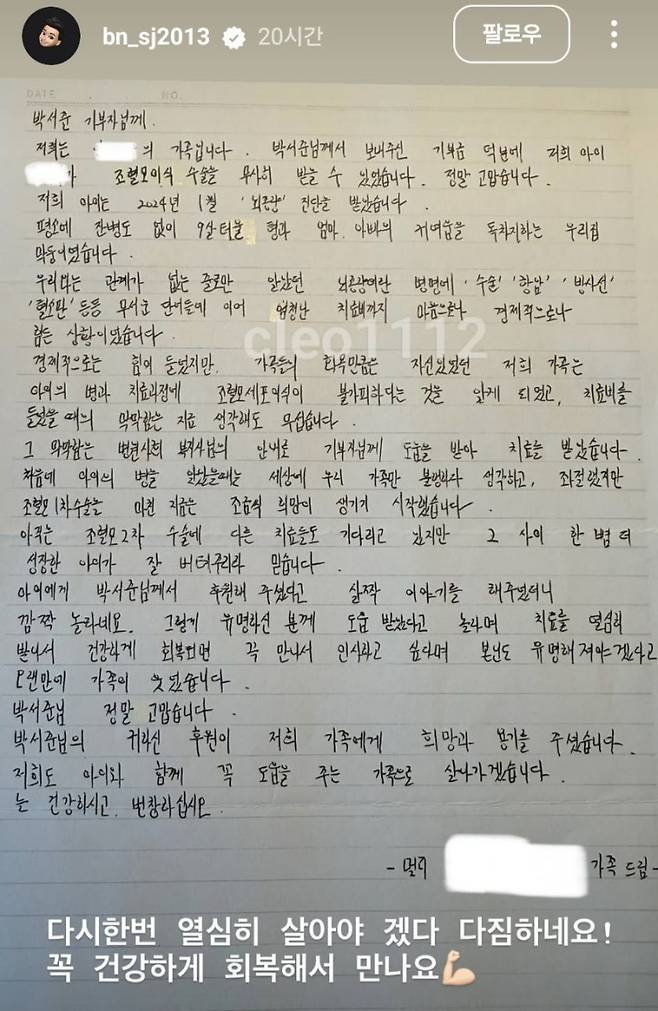 bn_sj2013 20시간 팔로우
DATE . . NO.
박서준 기부자님께.
저희는 의 가족입니다. 박서준님께서 보내주신 기부금 덕분에 저희 아이
가 조혈모이식 수술을 무사히 받을 수 있었습니다. 정말 고맙습니다.
저희 아이는 2024년 1월 '뇌종양' 진단을 받았습니다.
평소에 잔병도 없이 9살 터울 형과 엄마. 아빠의 귀여움을 독차지하는 우리집
막둥이였습니다.
우리와는 관계가 없는 줄로만 알았던 뇌종양이란 병명에 '수술' '항암' '방사선'
'혈소판' 등등 무서운 단어들에 이어 엄청난 치료비까지 마음으로나 경제적으로나
힘든 상황이었습니다.
cleo1112
경제적으로는 힘이 들었지만. 가족들의 화목만큼은 자신있었던 저희 가족은
아이의 병과 치료과정에 조혈모세포이식이 불가피하다는 것을 알게 되었고, 치료비를
들었을 때의 막막함은 지금 생각해도 무섭습니다.
그 막막함은 병원사회 복지사님의 안내로 기부자님께 도움을 받아 치료를 받았습니다.
처음에 아이의 병을 알았을때는 세상에 우리 가족만 불행하다 생각하고, 좌절했지만
조혈모 1차수술을 마친 지금은 조금씩 희망이 생기기 시작했습니다.
아직은 조혈모 2차 수술에 다른 치료들도 기다리고 있지만 그 사이 한 뼘 더
성장한 아이가 잘 버텨주리라 믿습니다.
아이에게 박서준님께서 후원해 주셨다고 살짝 이야기를 해주었더니
깜짝 놀라네요. 그렇게 유명하신 분께 도움 받았다고 놀라며 치료를 열심히
받아서 건강하게 회복되면 꼭 만나서 인사하고 싶다며 본인도 유명해져야겠다고
오랜만에 가족이 웃었습니다.
박서준님 정말 고맙습니다.
박서준님의 귀하신 후원이 저희 가족에게 희망과 용기를 주셨습니다.
저희도 아이와 함께 꼭 도움을 주는 가족으로 살아가겠습니다.
늘 건강하시고. 번창하십시오.
- 멀리 가족 드림 -
다시한번 열심히 살아야 겠다 다짐하네요!
꼭 건강하게 회복해서 만나요💪🏻